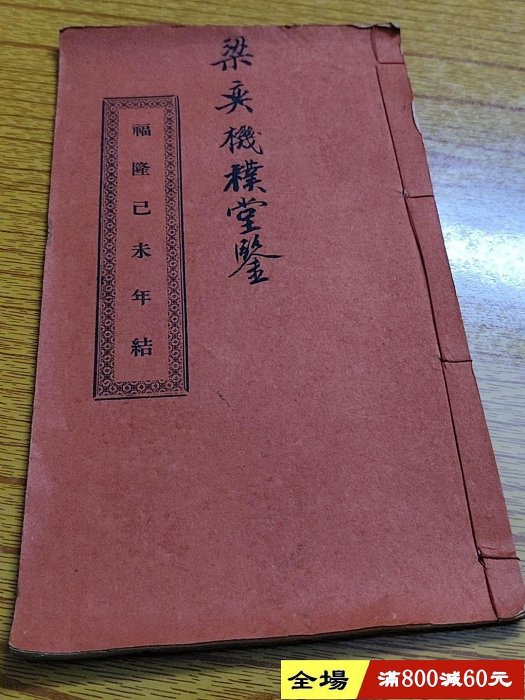 梁奕機樸堂鑒
福隆己未年結
全場 滿800減60元